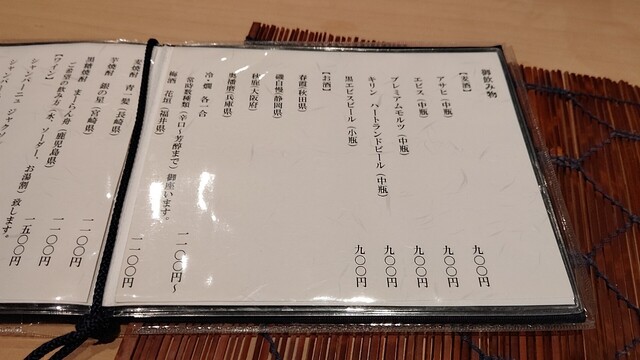 御飲み物
【麦酒】
アサヒ（中瓶） 九〇〇円
エビス（中瓶） 九〇〇円
プレミアムモルツ（中瓶） 九〇〇円
キリン ハートランドビール（中瓶） 九〇〇円
黒エビスビール（小瓶） 九〇〇円
【お酒】
春霞（秋田県）
磯自慢（静岡県）
秋鹿（大阪府）
奥播磨（兵庫県）
冷・燗 各一合
常時数種類（辛口～芳醇まで）御座います。 一二〇〇円～
梅酒 花垣（福井県） 一一〇〇円
麦焼酎 青一髪（長崎県）
芋焼酎 銀の星（宮崎県） 一一〇〇円
黒糖焼酎 まーらん舟（鹿児島県） 一一〇〇円
ご希望の飲み方（水、ソーダー、お湯割）致します。
【ワイン】
シャンパーニュ ジャクソン 一五〇〇円